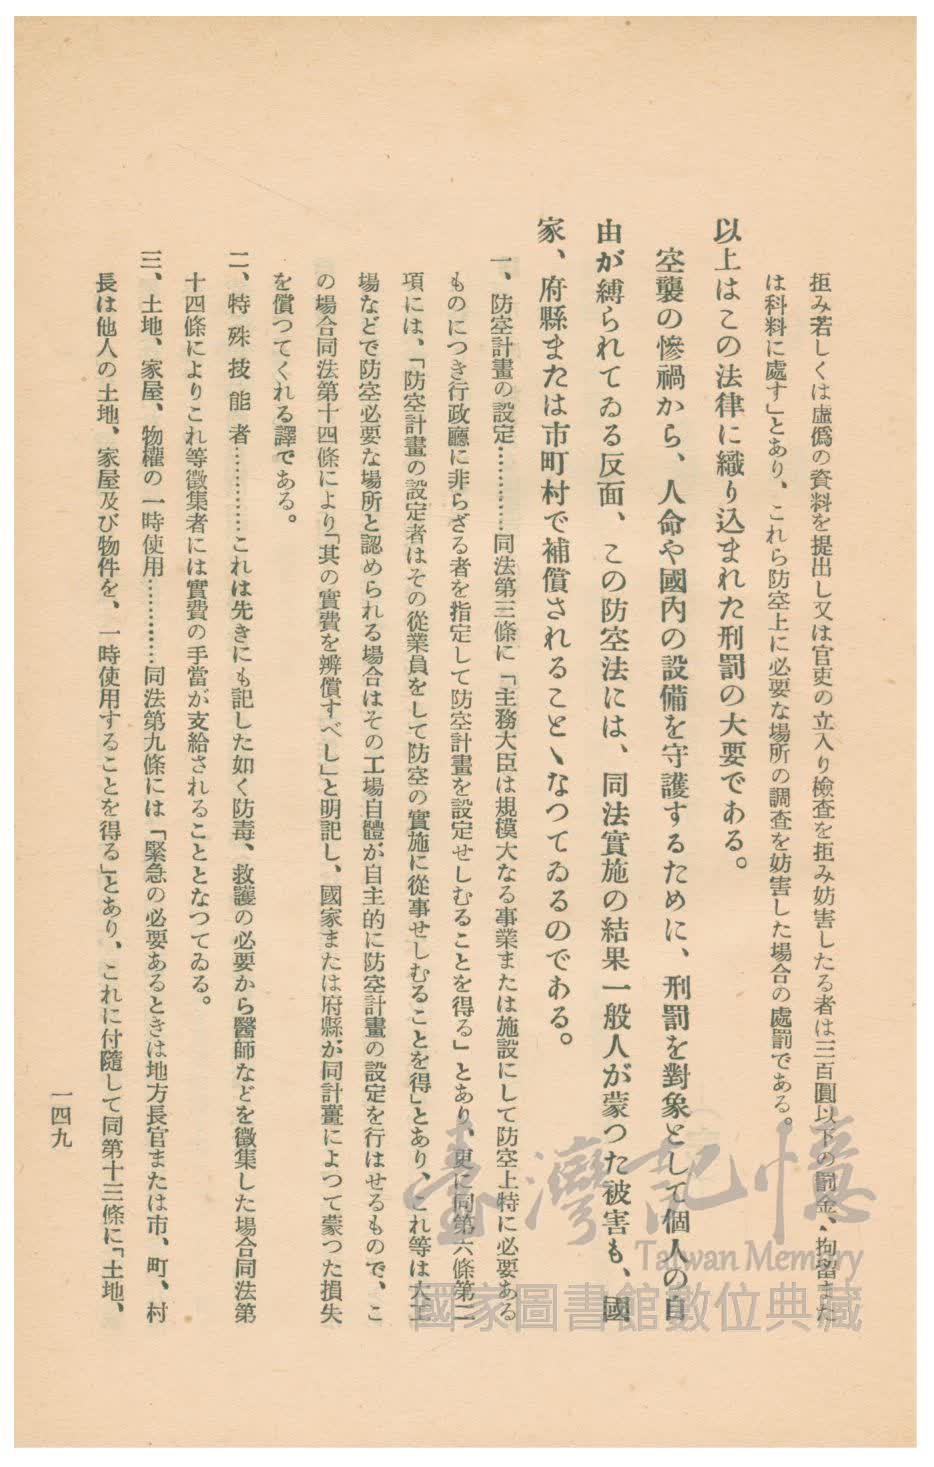 拒み若しくは虛僞の資料を提出し又は官吏の立入り檢査を拒み妨害したる者は三百圓以下の罰金、拘留また
は科料に處す」とあり、これら防空上に必要な場所の調査を妨害した場合の處罰である。
以上はこの法律に織り込まれた刑罰の大要である。
空襲の慘禍から、人命や國內の設備を守護するために、刑罰を對象として個人の自
由が縛られてゐる反面、この防空法には、同法實施の結果一般人が蒙つた被害も、國
家、府縣または市町村で補償されることゝなつてゐるのである。
一、防空計畫の設定…………同法第三條に「主務大臣は規模大なる事業または施設にして防空上特に必要ある
ものにつき行政廳に非らざる者を指定して防空計畫を設定せしむることを得る」とあり、更に同第六條第二
項には、「防空計畫の設定者はその從業員をして防空の實施に從事せしむることを得」とあり、これ等は大工
場などで防空必要な場所と認められる場合はその工場自體が自主的に防空計畫の設定を行はせるもので、こ
の場合同法第十四條により「其の實費を辨償すべし」と明記し、國家または府縣が同計畫によつて蒙つた損失
を償つてくれる譯である。
二、特殊技能者…………これは先きにも記した如く防毒、救護の必要から醫師などを徵集した場合同法第
十四條によりこれ等徵集者には實費の手當が支給されることとなつてゐる。
三、土地、家屋、物權の一時使用…………同法第九條には「緊急の必要あるときは地方長官または市、町、村
長は他人の土地、家屋及び物件を、一時使用することを得る」とあり、これに付隨して同第十三條に「土地、
一四九
臺灣記憶
Taiwan Memory
國家圖書館數位典藏